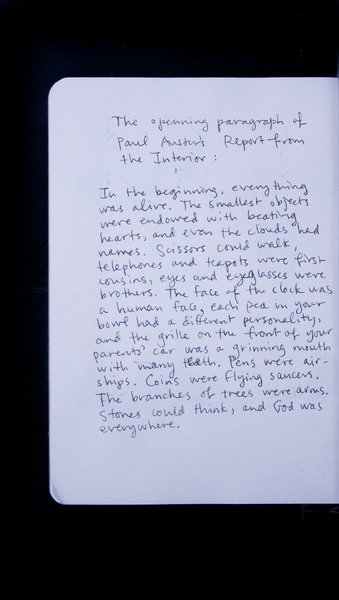 The openning paragraph of
Paul Auster's Report from
the Interior:
In the beginning, everything
was alive. The smallest objects
were endowed with beating
hearts, and even the clouds had
names. Scissors could walk,
telephones and teapots were first
cousins, eyes and eyeglasses were
brothers. The face of the clock was
a human face, each pea in your
bowl had a different personality,
and the grille on the front of your
parents' car was a grinning mouth
with many teeth. Pens were air-
ships. Coins were flying saucers.
The branches of trees were arms.
Stones could think, and God was
everywhere.